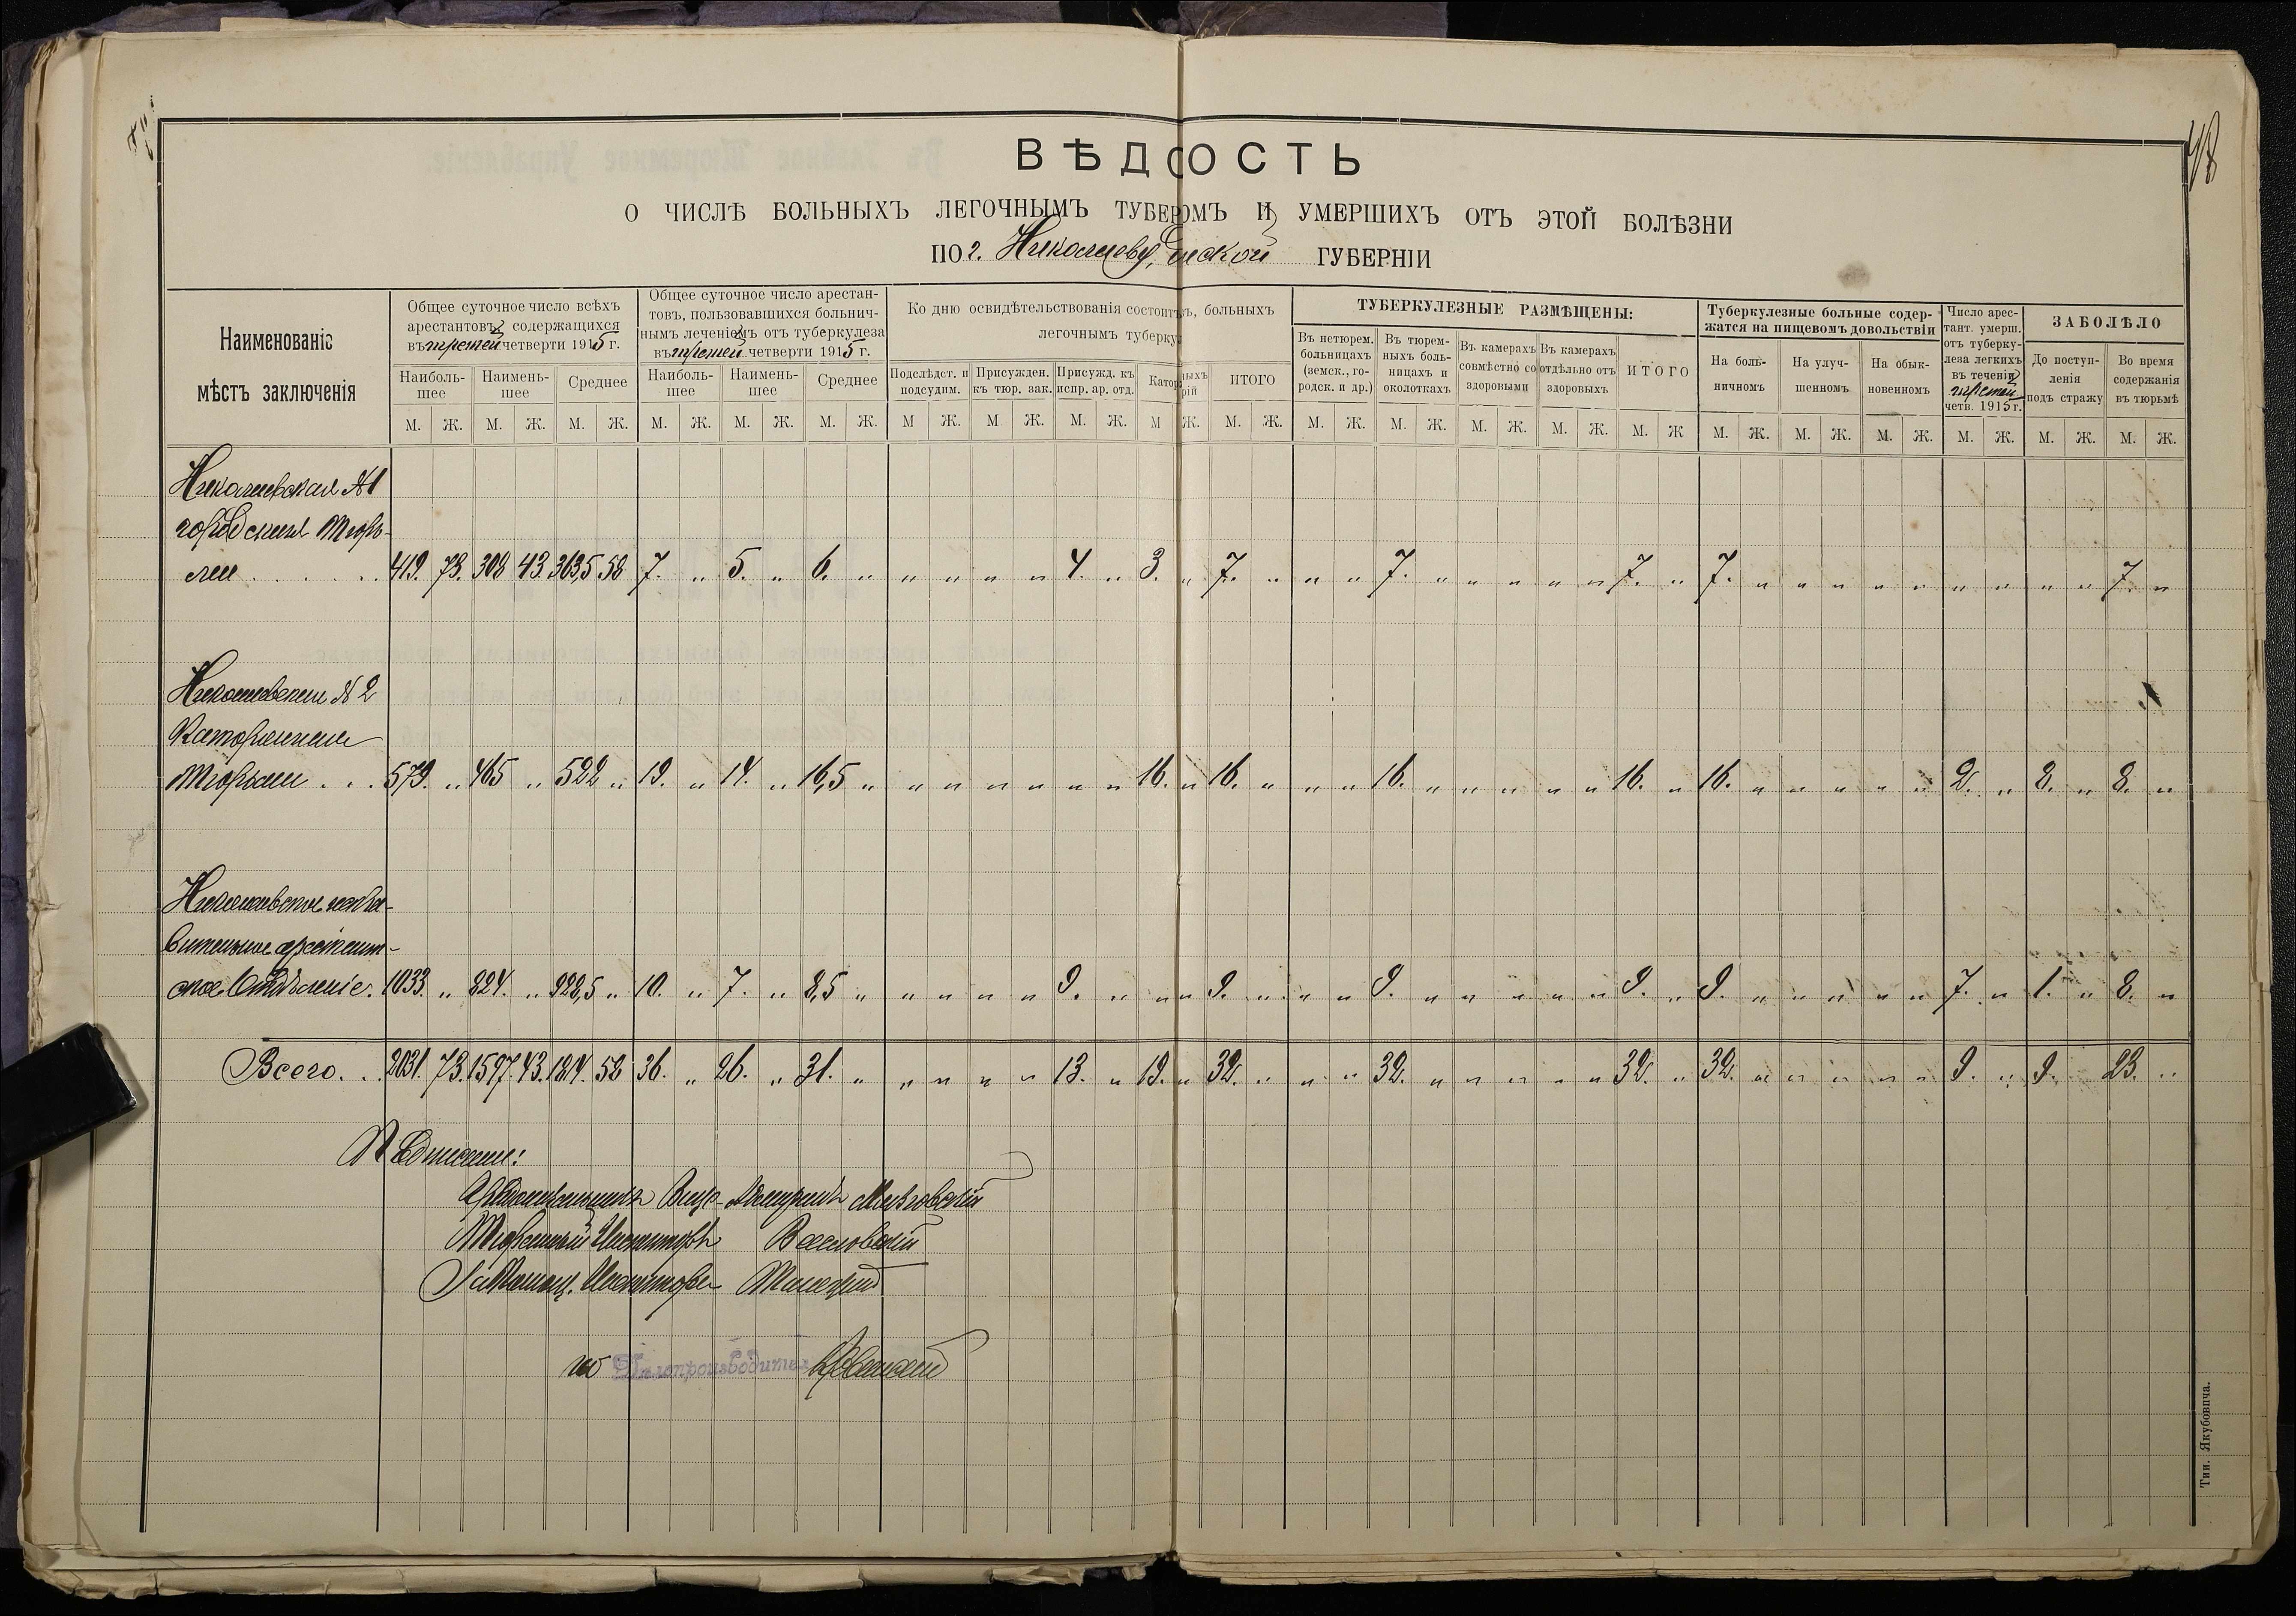 48
ВѢДОСТЬ
О ЧИСЛѢ БОЛЬНЫХЪ ЛЕГОЧНЫМЪ ТУБЕРОМЪ И УМЕРШИХЪ ОТЪ ЭТОЙ БОЛѢЗНИ
ПО г. Николаеву, ской ГУБЕРНІИ
Наименованіе
мѣстъ заключенія
Общее суточное число всѣхъ
арестантовъ, содержащихся
въ третей четверти 1915 г.
Наиболь-
шее
Наимень-
шее
Среднее
Общее суточное число арестан-
товъ, пользовавшихся больнич-
нымъ леченіемъ отъ туберкулеза
въ третей четверти 1915 г.
Наиболь-
шее
Наимень-
шее
Среднее
Ко дню освидѣтельствованія состоитъ, больныхъ
легочнымъ туберку
Подслѣдст. и
подсудим.
Присужден.
къ тюр. зак.
Присужд. къ
испр. ар. отд.
Катор ныхъ
рій
ИТОГО
ТУБЕРКУЛЕЗНЫЕ РАЗМѢЩЕНЫ:
Въ нетюрем.
больницахъ
(земск., го-
родск. и др.)
Въ тюрем-
ныхъ боль-
ницахъ и
околоткахъ
Въ камерахъ
совмѣстно со
здоровыми
Въ камерахъ
отдѣльно отъ
здоровыхъ
ИТОГО
Туберкулезные больные содер-
жатся на пищевомъ довольствіи
На боль-
ничномъ
На улуч-
шенномъ
На обык-
новенномъ
Число арес-
тант. умерш.
отъ туберку-
леза легкихъ
въ теченіи
третей
четв. 1915 г.
ЗАБОЛѢЛО
До поступ-
ленія
подъ стражу
Во время
содержанія
въ тюрьмѣ
М. Ж. М. Ж. М. Ж. М. Ж. М. Ж. М. Ж. М Ж. М Ж. М. Ж. М Ж. М. Ж. М. Ж. М. Ж. М. Ж. М. Ж. М. Ж М. Ж. М. Ж. М. Ж. М. Ж. М. Ж. М. Ж.
Николаевская №1
городская Тюрь-
ма . . . . 419. 73. 308 43. 363,5 58 7. „ 5. „ 6. „ „ „ „ „ 4. „ 3. „ 7. „ „ „ 7. „ „ „ „ „ 7. „ 7. „ „ „ „ „ „ „ „ „ 7. „
Николаевская №2
Каторжная
Тюрьма . . . 579. „ 465 „ 522 „ 19. „ 14. „ 16,5 „ „ „ „ „ „ „ 16. „ 16. „ „ „ 16. „ „ „ „ „ 16. „ 16. „ „ „ „ „ 2. „ 8. „ 8. „
Николаевское испра-
вительное арестант-
ское Отдѣленіе. 1033. „ 824. „ 928,5 „ 10. „ 7. „ 8,5 „ „ „ „ „ 9. „ „ „ 9. „ „ „ 9. „ „ „ „ „ 9. „ 9. „ „ „ „ „ 7. „ 1. „ 8. „
Всего. . 2031. 73. 1597. 43. 1814. 58 36. „ 26. „ 31. „ „ „ „ „ 13. „ 19. „ 32. „ „ „ 32. „ „ „ „ „ 32. „ 32. „ „ „ „ „ 9. „ 9. 23. „
Подписали:
Градоначальникъ Вице-Адмиралъ Мязговскій
Тюремный Инспекторъ Веселовскій
За Помощ. Инспектора
Дѣлопроизводител
Тип. Якубовича.